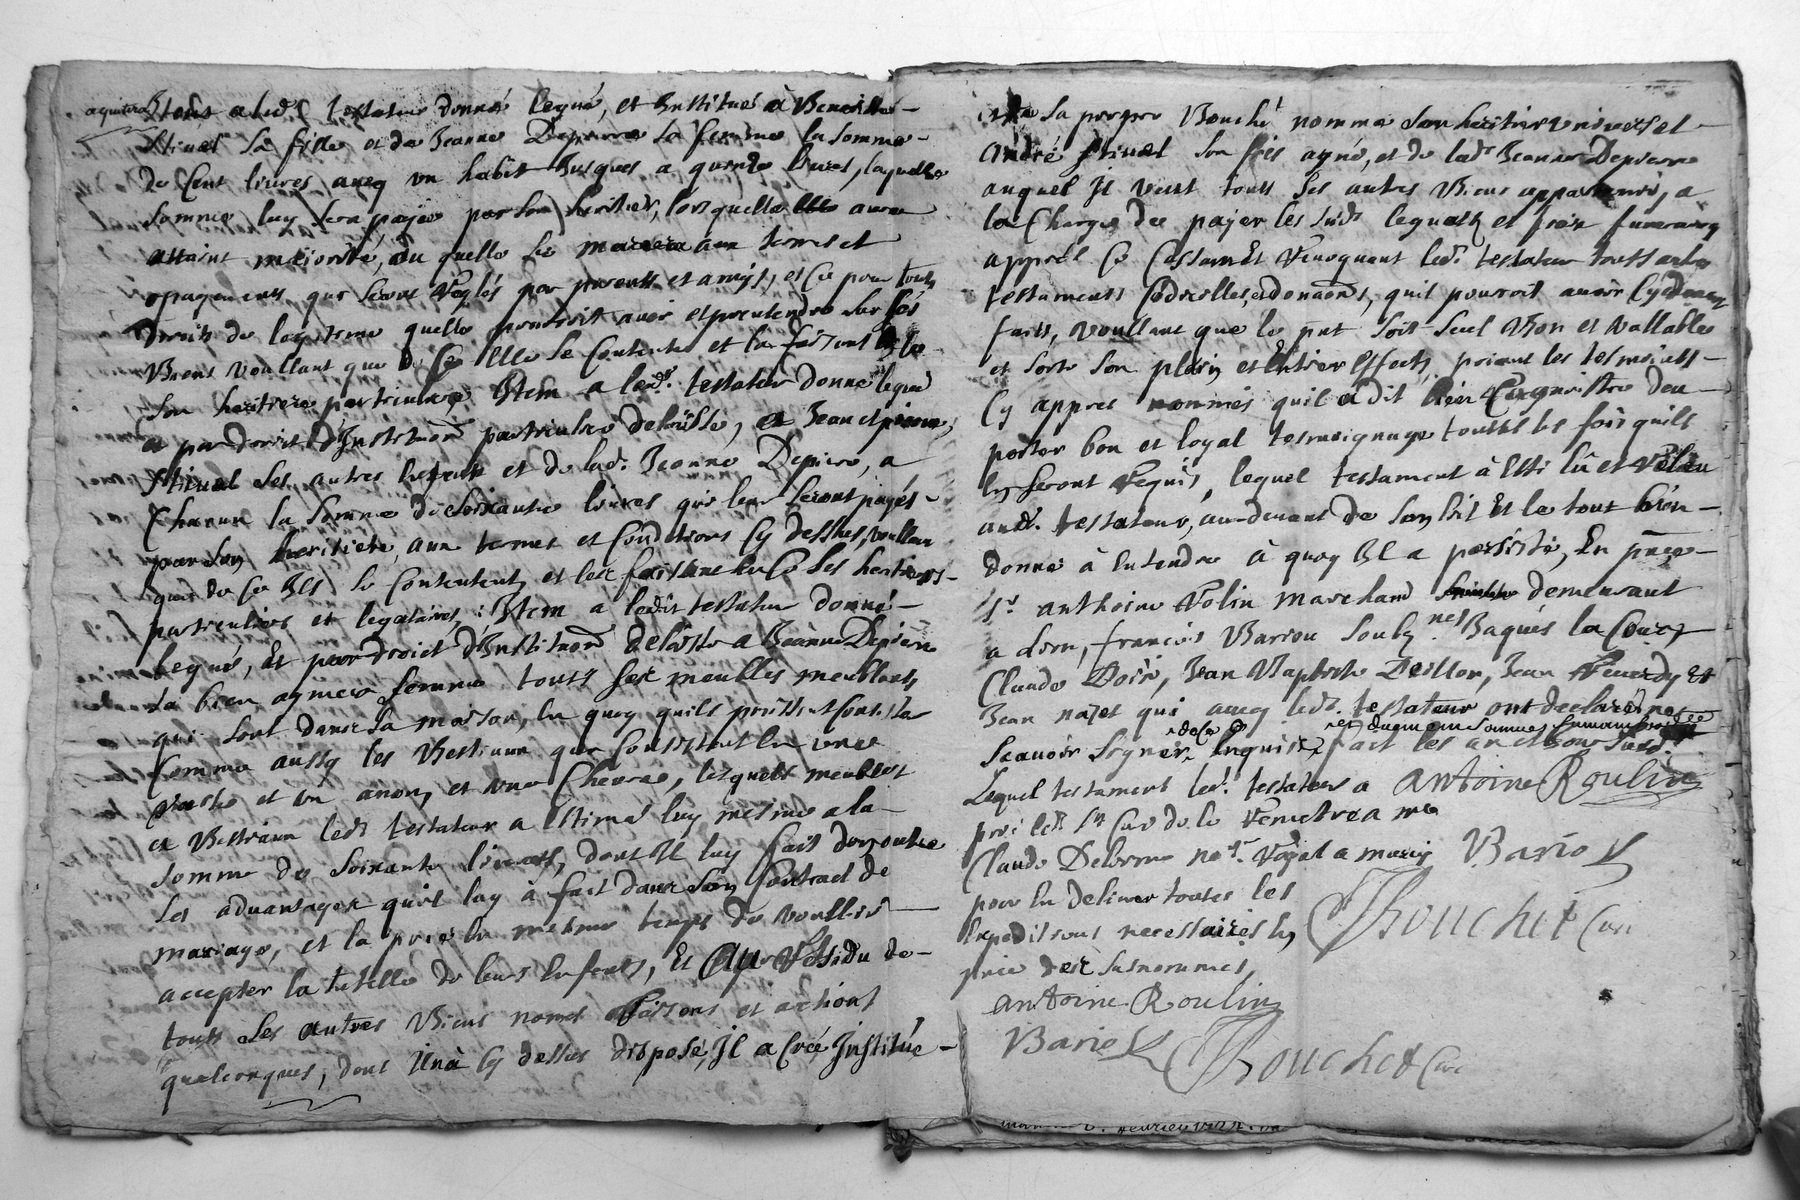 Item a led. testateur donné legué, et Institué à Benoiste
sa fille et de Jeanne Depierre sa femme la somme
de Cent livres avec un habit Jusques a quinze livres, laquelle
somme luy sera payée par son heritier, lors quelle aura
attaint majorité, ou quelle se mariera aux termes et
payements qui seront reglés par parents et amys, et ce pour touts
droits de legitime quelle pourroit avoir et pretendre sur ses
Biens voullant que de ce Elle se Contente et la faisant
son heritiere particuliere Item a led. testateur donné legué
et par droict d'Institution particuliere delaissé, a Jean et pierre
ses autres Enfents et de lad. Jeanne Depierre, a
Chacun la somme de soixante livres qui leur seront payés
par son heritiere, aux termes et Conditions Cy dessus, voullant
que de Ce Ils se Contentent, et les faisant en Ce ses heritiers
particuliers et legataires, Item a ledit testateur donné
legué, Et par droict d'Institution delaissé a Jeanne Depierre
sa bien aymée femme touts ses meubles meublants
qui sont dans sa maison, en quoy quils puissent Consister
Comme aussy les Bestiaux qui Consistent en une
vache et un anon, et une Chevre, lesquels meubles
et Bestiaux led. testateur a Estimé luy mesme a la
somme de soixante livres, dont Il luy fait don outre
les advantages quil luy à fait dans son Contract de
mariage, et la prie en mesme temps de voulloir
accepter la tutelle de leurs Enfents, Et Au Residu de
touts ses autres Biens noms Raisons et actions
quelconques, dont Il nà Cy dessus disposé, Il a Créé Institué
de sa propre Bouche nommé son heritier universel
André son fils ayné, et de lad. Jeanne Depierre
auquel Il veut touts ses autres Biens appartenir, a
la Charge de payer les susd. legats et frais funeraux
apprés Ce Cassant Et revoquant led. testateur touts autres
testaments Codicilles et donaons, quil pouroit avoir Cy devant
faits, voullant que le pnt soit seul bon et vallable
et sorte son plein et Entier Effect, priant les tesmoins
Cy appres nommés quil a dit bien Cognoistre den
porter bon et loyal tesmoignage touttes les fois quils
En seront requis, lequel testament à Esté lû et relu
aud. testateur, au devant de son lit Et le tout bien
donné à Entendre à quoy Il a persisté, En pnce
Sr. anthoine Rolin marchand demeurant
a françois Bariou Jaques la Cour
Claude Jean Baptiste Jean Et
Jean qui avec led. testateur ont declaré ne
sçavoir signer Enquis fait les an et Jour susd.
Lequel testament led. testateur a
prié led. Sr Curé de le remettre a me
Claude Delorme nore. Royal a
pour En delivrer toutes les
Expeditions necessaires En
pnce des susnommes,
antoine Roulin
Bariou
Bouchet Curé
antoine Roulin
Bariou
Bouchet Curé